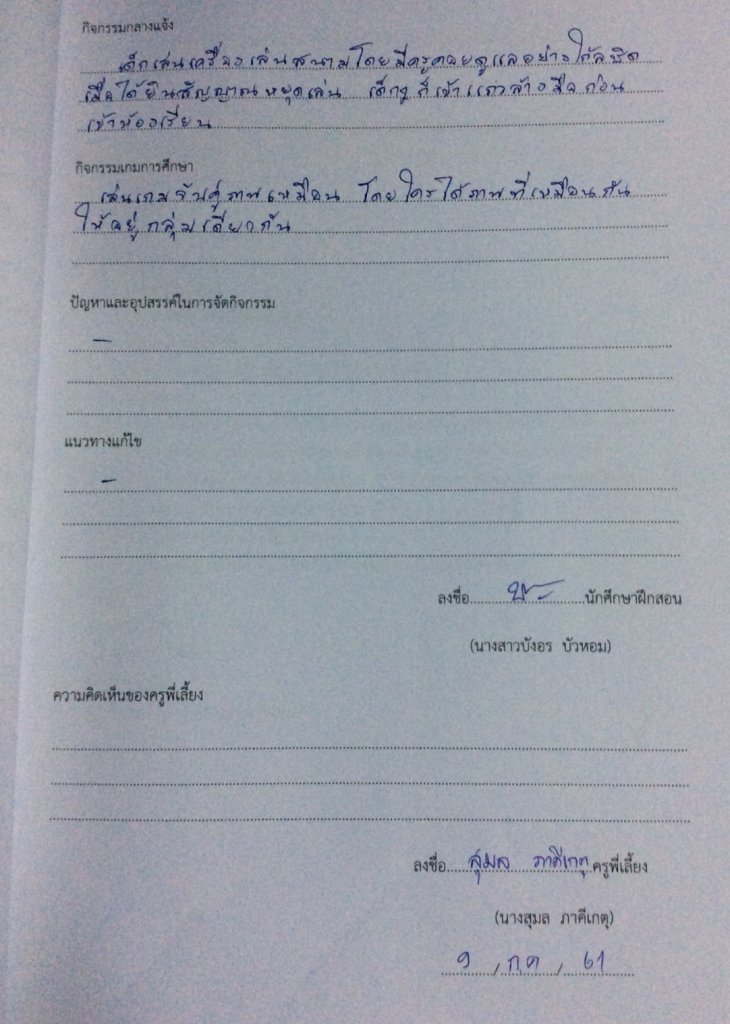 กิจกรรมกลางแจ้ง
เด็กเล่นเครื่องเล่นสนามโดยมีครูคอยดูแลอย่างใกล้ชิด
เมื่อได้ยินสัญญาณหยุดเล่น เด็กๆ ก็เข้าแถวล้างมือก่อน
เข้าห้องเรียน
กิจกรรมเกมการศึกษา
เล่นเกมจับคู่ภาพเหมือน โดยใครได้ภาพที่เหมือนกัน
ให้อยู่กลุ่มเดียวกัน
ปัญหาและอุปสรรคในการจัดกิจกรรม
-
แนวทางแก้ไข
-
ลงชื่อ....................นักศึกษาฝึกสอน
(นางสาวบังอร บัวหอม)
ความคิดเห็นของครูพี่เลี้ยง
ลงชื่อ สุมล ภาคีเกตุ ครูพี่เลี้ยง
(นางสุมล ภาคีเกตุ)
9 / กค / 61